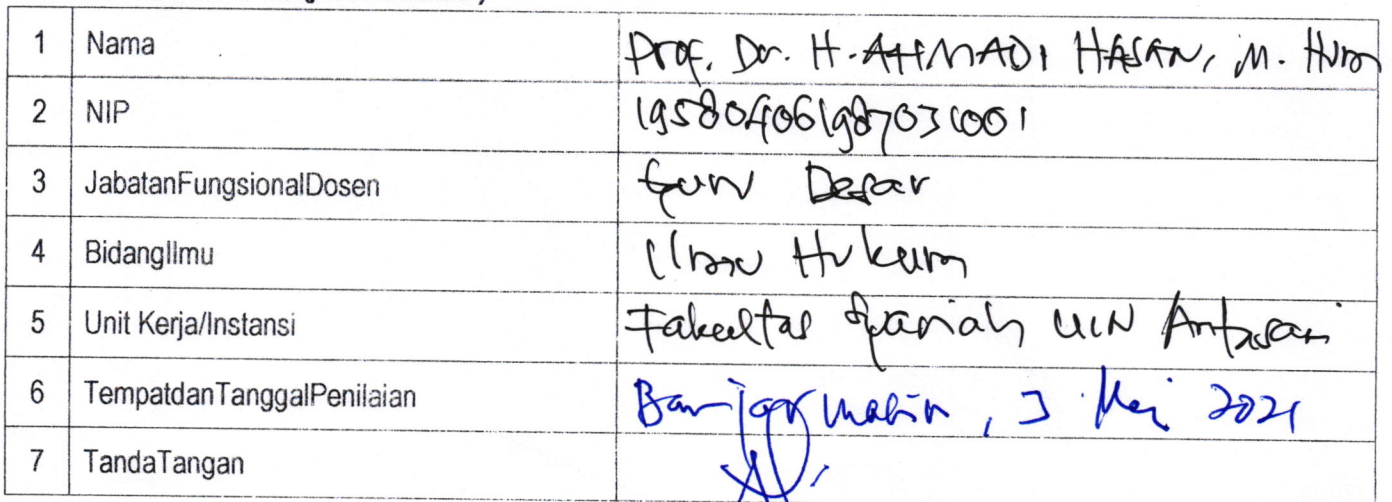 1 Nama Prof. Dr. H. AHMADI HASAN, M. Hum
2 NIP 195804061987031001
3 JabatanFungsionalDosen Guru Besar
4 BidangIlmu Ilmu Hukum
5 Unit Kerja/Instansi Fakultas Syariah UIN Antasari
6 TempatdanTanggalPenilaian Banjarmasin, 3 Mei 2021
7 TandaTangan